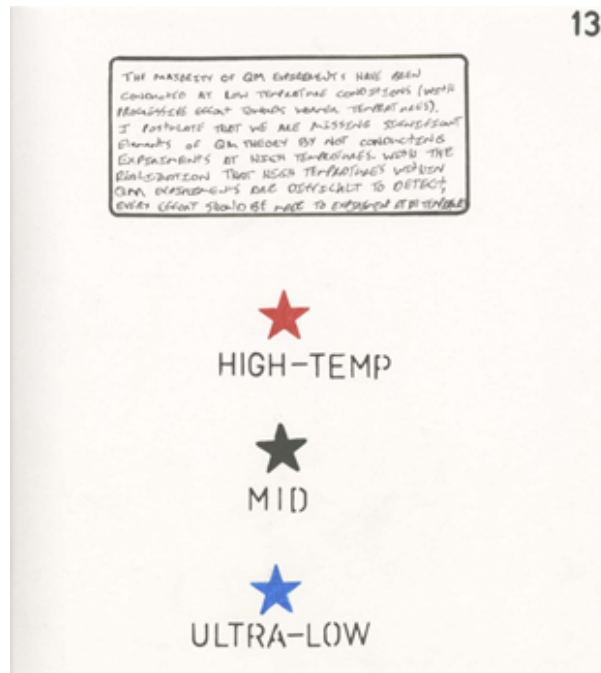 13
THE MAJORITY OF QM EXPERIMENTS HAVE BEEN
CONDUCTED AT LOW TEMPERATURE CONDITIONS (WITH
PROGRESSIVE EFFORT TOWARDS WARMER TEMPERATURES).
I POSTULATE THAT WE ARE MISSING SIGNIFICANT
ELEMENTS OF QM THEORY BY NOT CONDUCTING
EXPERIMENTS AT HIGH TEMPERATURES. WITH THE
REALIZATION THAT HIGH TEMPERATURES WITHIN
QM EXPERIMENTS ARE DIFFICULT TO DETECT,
EVERY EFFORT SHOULD BE MADE TO EXPERIMENT AT
HIGH-TEMP
MID
ULTRA-LOW